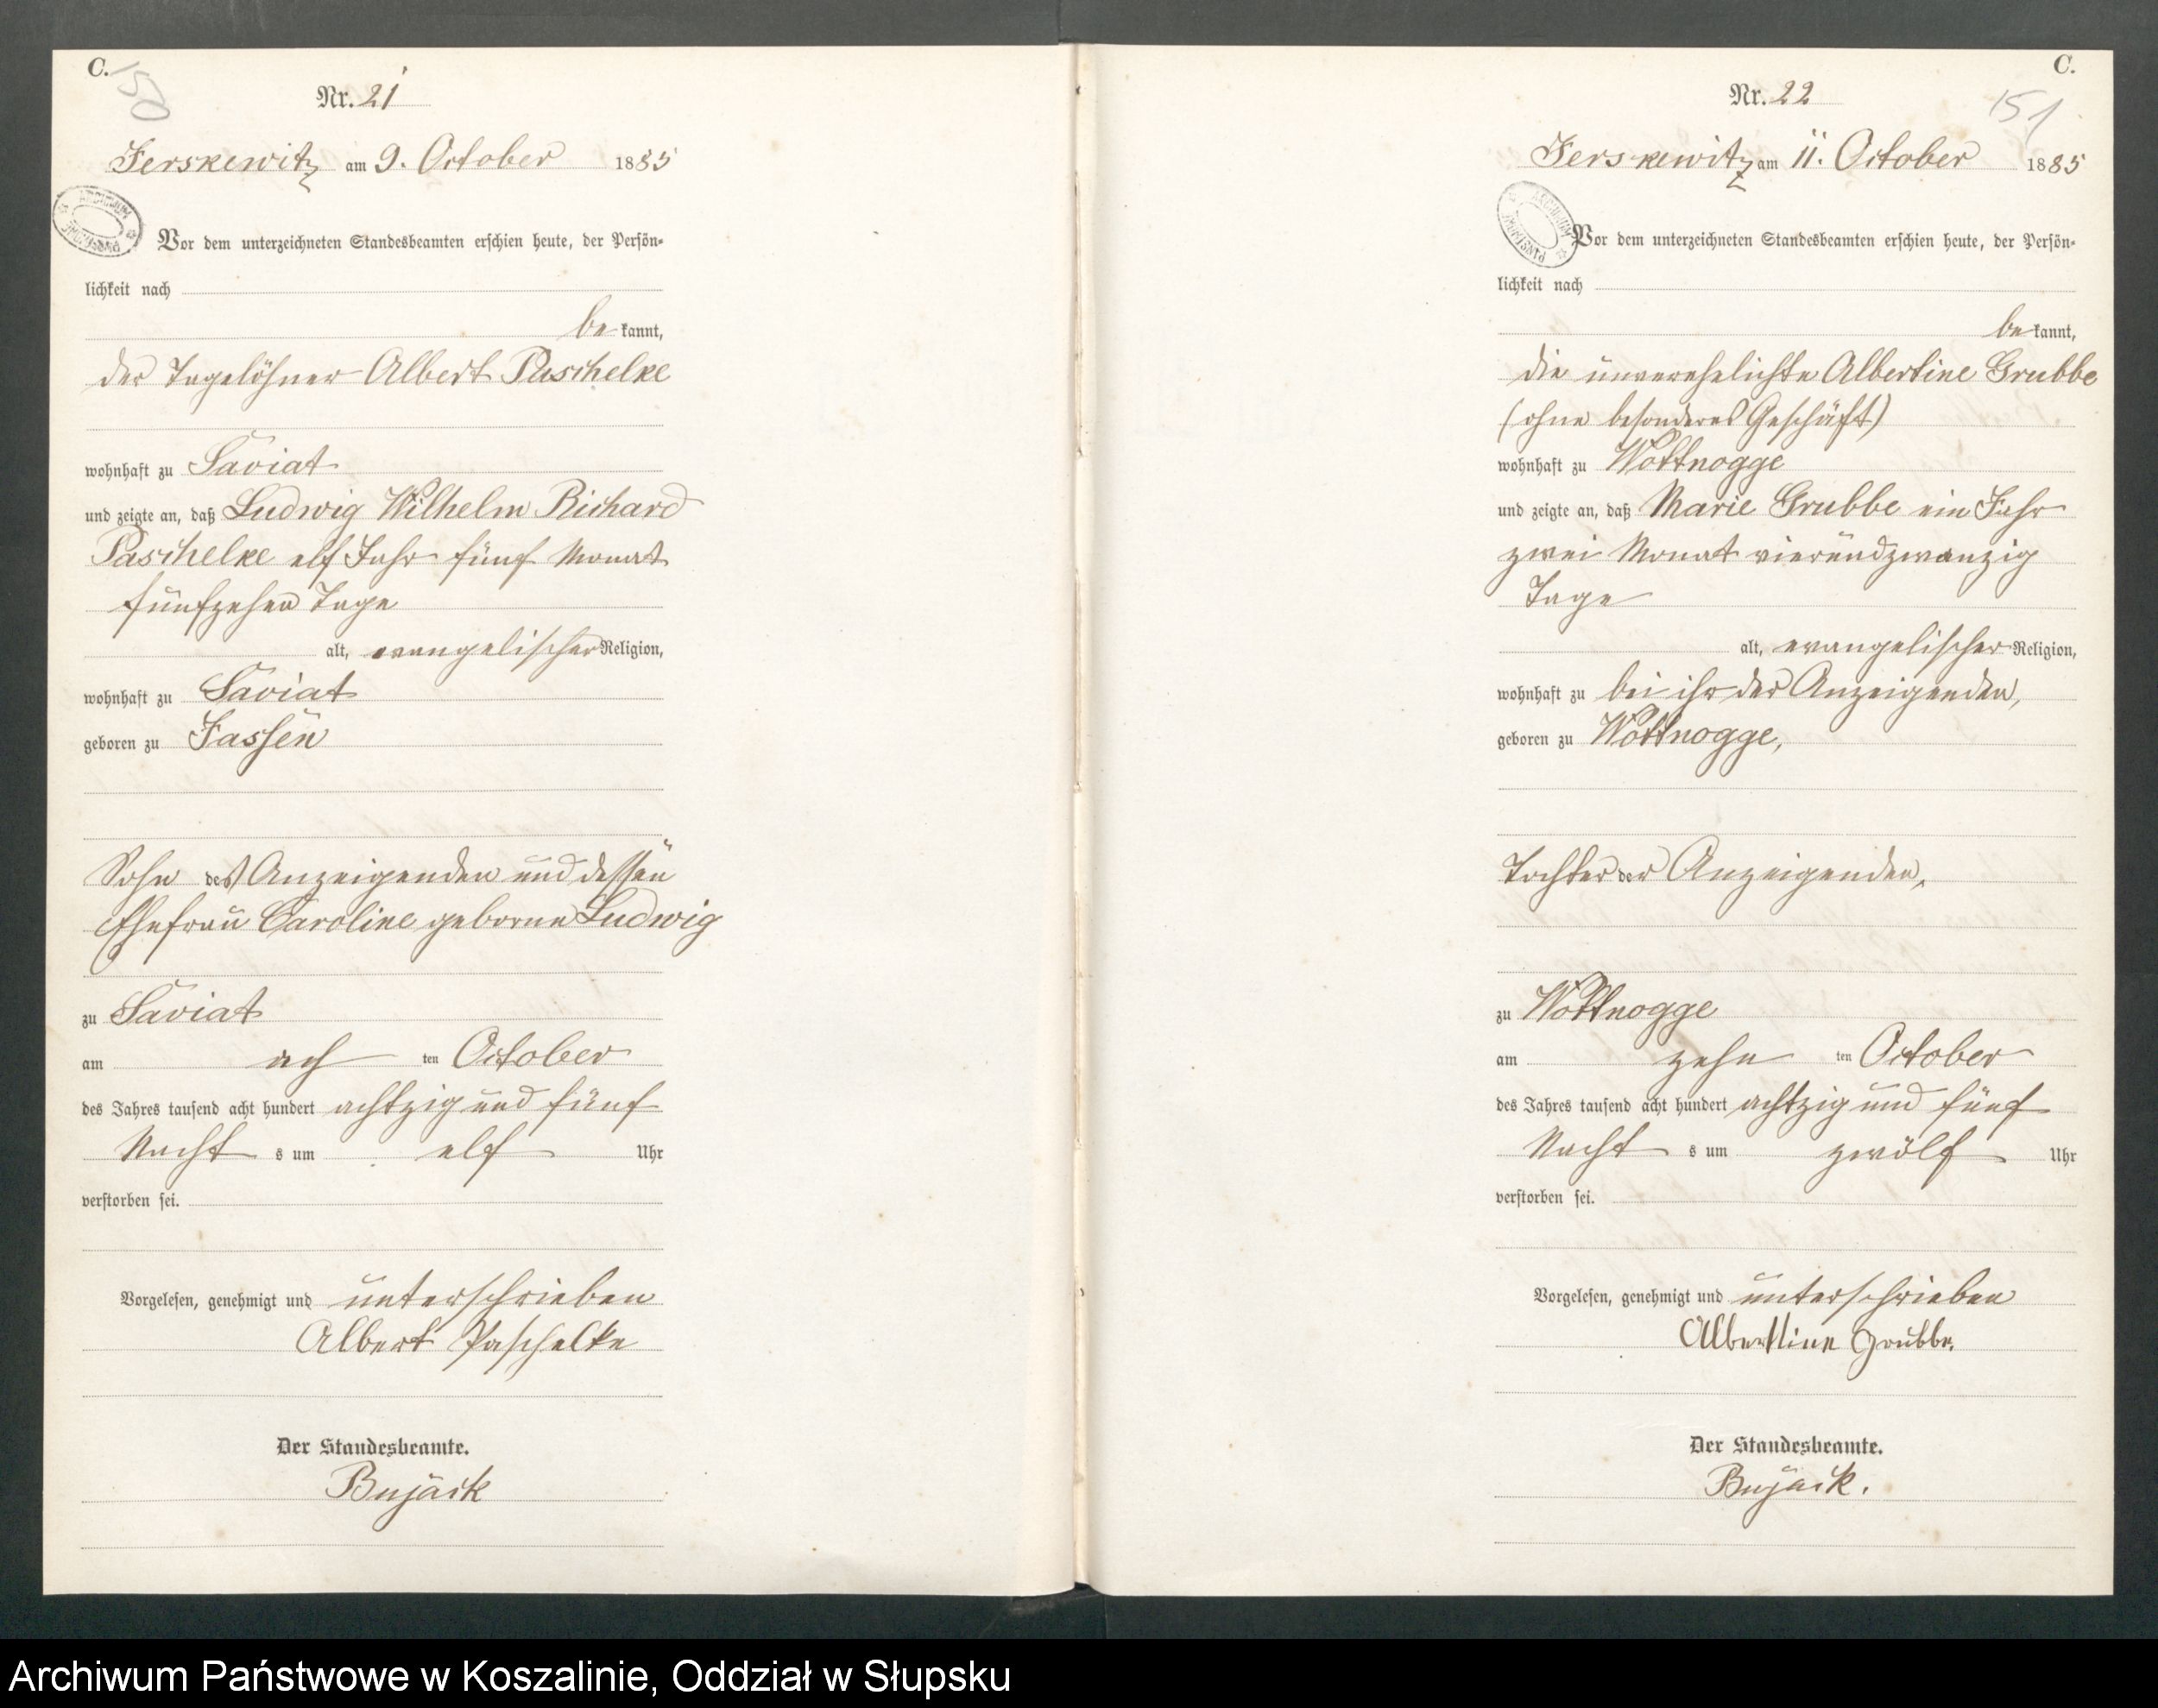 C.
150
Nr. 21
Jerskewitz am 9. October 1885
ARCHIWUM PAŃSTWOWE
Vor dem unterzeichneten Standesbeamten erschien heute, der Persön-
lichkeit nach
be kannt,
der Tagelöhner Albert Paschelke
wohnhaft zu Saviat
und zeigte an, daß Ludwig Wilhelm Richard
Paschelke elf Jahr fünf Monat
fünfzehen Tage
alt, evangelischer Religion,
wohnhaft zu Saviat
geboren zu Jassen
Sohn des Anzeigenden und dessen
Ehefrau Caroline geborne Ludwig
zu Saviat
am ach ten October
des Jahres tausend acht hundert achtzig und fünf
Nacht s um elf Uhr
verstorben sei.
Vorgelesen, genehmigt und unterschrieben
Albert Paschelke
Der Standesbeamte.
Bujack
C.
151
Nr. 22
Jerskewitz am 11. October 1885
ARCHIWUM PAŃSTWOWE
Vor dem unterzeichneten Standesbeamten erschien heute, der Persön-
lichkeit nach
be kannt,
die unverehelichte Albertine Grubbe
(ohne besonderes Geschäft)
wohnhaft zu Wottnogge
und zeigte an, daß Marie Grubbe ein Jahr
zwei Monat vierundzwanzig
Tage
alt, evangelischer Religion,
wohnhaft zu bei ihr der Anzeigenden,
geboren zu Wottnogge,
Tochter der Anzeigenden,
zu Wottnogge
am zehn ten October
des Jahres tausend acht hundert achtzig und fünf
Nacht s um zwölf Uhr
verstorben sei.
Vorgelesen, genehmigt und unterschrieben
Albertine Grubbe.
Der Standesbeamte.
Bujack.
Archiwum Państwowe w Koszalinie, Oddział w Słupsku